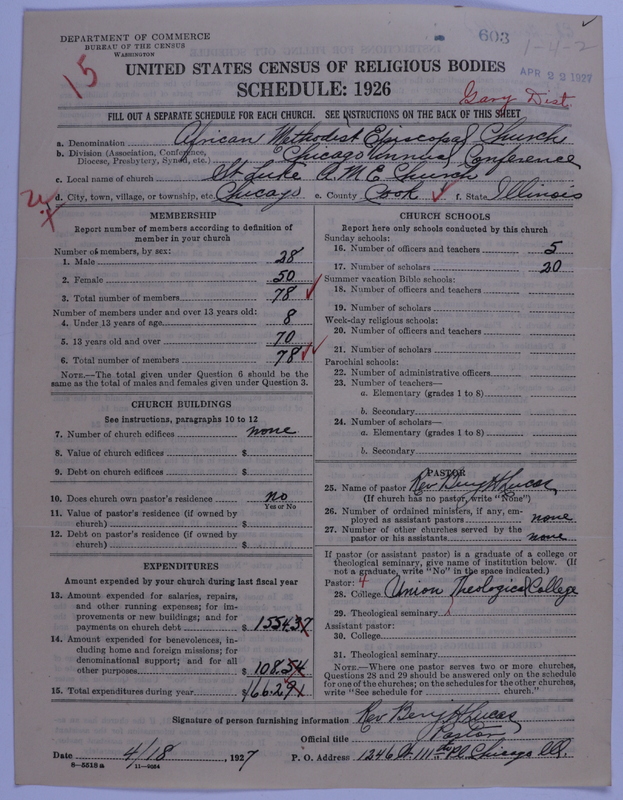 DEPARTMENT OF COMMERCE
BUREAU OF THE CENSUS
WASHINGTON
603
1-4-2
15
APR 22 1927
UNITED STATES CENSUS OF RELIGIOUS BODIES
SCHEDULE: 1926
Gary Dist.
FILL OUT A SEPARATE SCHEDULE FOR EACH CHURCH. SEE INSTRUCTIONS ON THE BACK OF THIS SHEET
a. Denomination African Methodist Episcopal Church
b. Division (Association, Conference, Diocese, Presbytery, Synod, etc.) Chicago Annual Conference
c. Local name of church St Luke A.M.E Church
d. City, town, village, or township, etc. Chicago e. County Cook f. State Illinois
MEMBERSHIP
Report number of members according to definition of
member in your church
Number of members, by sex:
1. Male 28
2. Female 50
3. Total number of members 78
Number of members under and over 13 years old:
4. Under 13 years of age 8
5. 13 years old and over 70
6. Total number of members 78
NOTE.—The total given under Question 6 should be the
same as the total of males and females given under Question 3.
CHURCH BUILDINGS
See instructions, paragraphs 10 to 12
7. Number of church edifices none
8. Value of church edifices $
9. Debt on church edifices $
10. Does church own pastor's residence no
Yes or No
11. Value of pastor's residence (if owned by
church) $
12. Debt on pastor's residence (if owned by
church) $
EXPENDITURES
Amount expended by your church during last fiscal year
13. Amount expended for salaries, repairs,
and other running expenses; for im-
provements or new buildings; and for
payments on church debt $ 1554.37
14. Amount expended for benevolences, in-
cluding home and foreign missions; for
denominational support; and for all
other purposes $ 108.54
15. Total expenditures during year $ 1662.91
CHURCH SCHOOLS
Report here only schools conducted by this church
Sunday schools:
16. Number of officers and teachers 5
17. Number of scholars 20
Summer vacation Bible schools:
18. Number of officers and teachers
19. Number of scholars
Week-day religious schools:
20. Number of officers and teachers
21. Number of scholars
Parochial schools:
22. Number of administrative officers
23. Number of teachers—
a. Elementary (grades 1 to 8)
b. Secondary
24. Number of scholars—
a. Elementary (grades 1 to 8)
b. Secondary
PASTOR
25. Name of pastor Rev Benj H Lucas
(If church has no pastor, write "None")
26. Number of ordained ministers, if any, em-
ployed as assistant pastors none
27. Number of other churches served by the
pastor or his assistants none
If pastor (or assistant pastor) is a graduate of a college or
theological seminary, give name of institution below. (If
not a graduate, write "No" in the space indicated.)
Pastor: 4
28. College Union Theological College
29. Theological seminary
Assistant pastor:
30. College
31. Theological seminary
NOTE.—Where one pastor serves two or more churches,
Questions 28 and 29 should be answered only on the schedule
for one of the churches; on the schedules for the other churches,
write "See schedule for church."
Signature of person furnishing information Rev Benj H Lucas
Official title Pastor
Date 4/18, 1927 P. O. Address 1246 W. 111th Pl. Chicago Ill.
8-5518a 11-9864